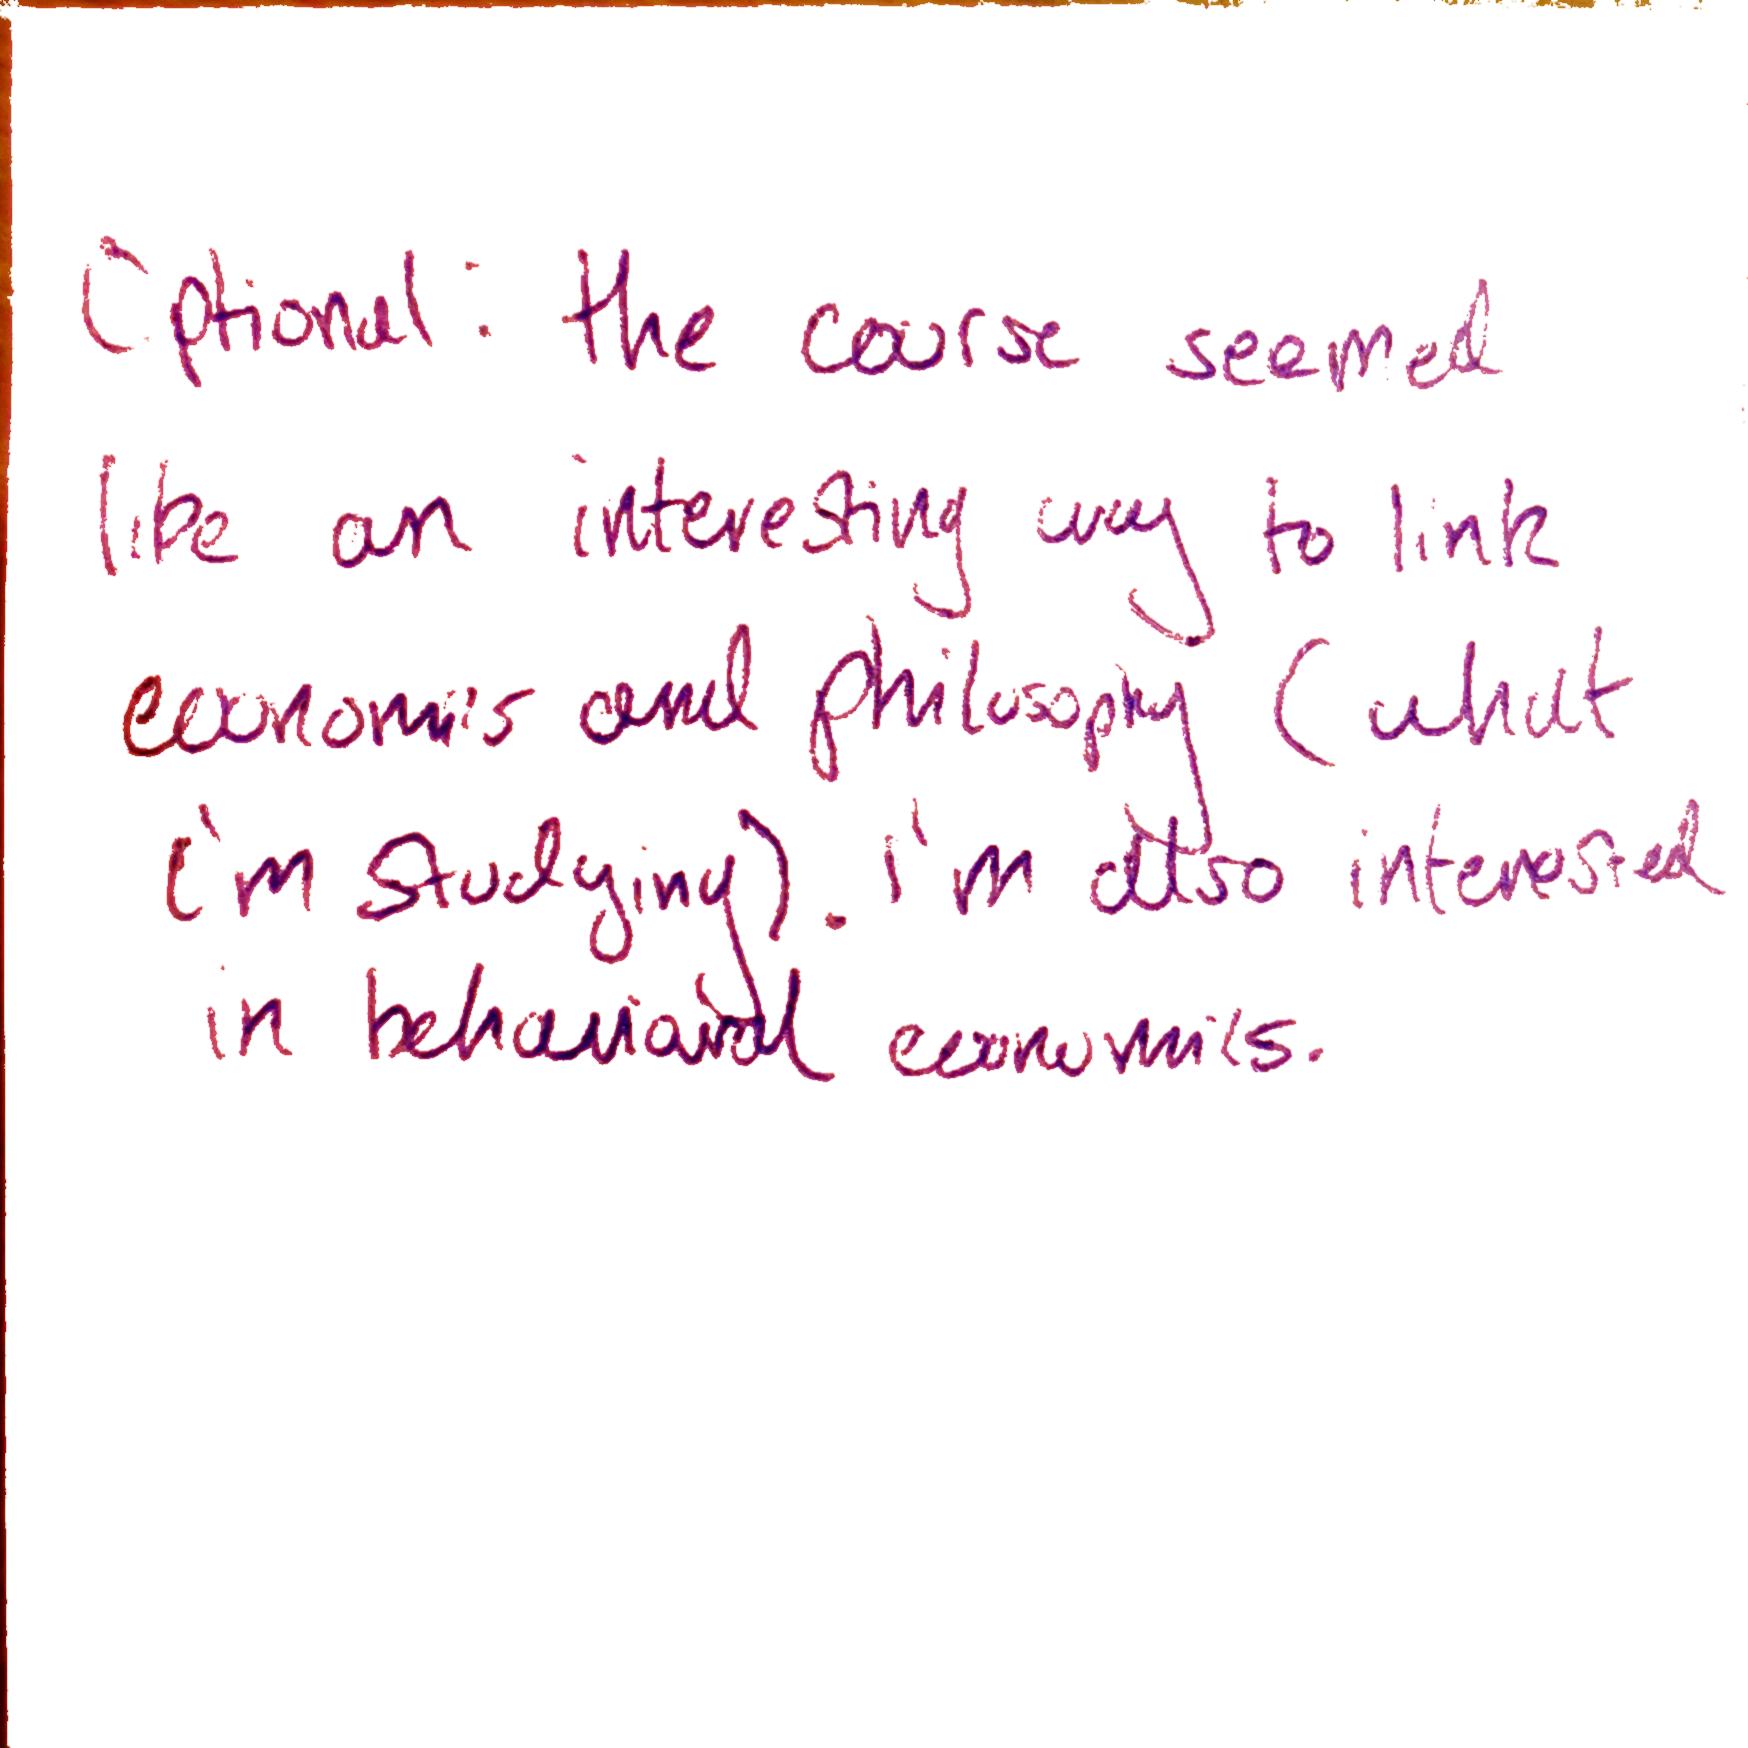 Optional: the course seemed
like an interesting way to link
economics and philosophy (what
i'm studying). i'm also interested
in behavioural economics.